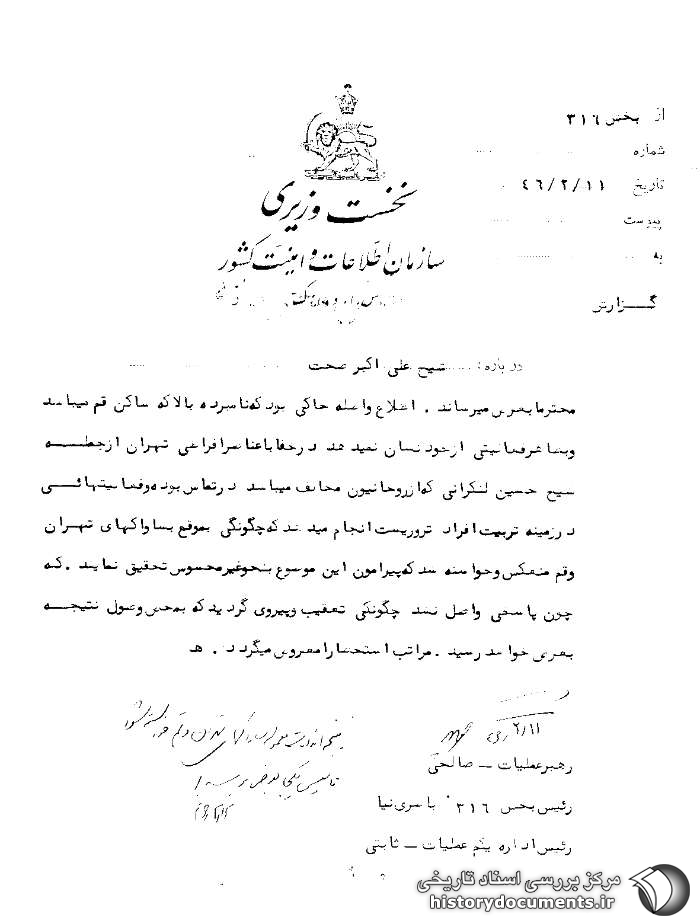 از بخش ۳۱۶
شماره
تاریخ ۴۶/۲/۱۱
پیوست
به
گزارش
نخست وزیری
سازمان اطلاعات و امنیت کشور
درباره: شیخ علی اکبر صحت
محترما بعرض میرساند . اطلاع واصله حاکی بود که نامبرده بالا که ساکن قم میباشد
و بظاهر فعالیتی از خود نشان نمیدهد در خفا با عناصر افراطی تهران از جمله
شیخ حسین لنکرانی که از روحانیون مخالف میباشد در تماس بوده و فعالیتهائی
در زمینه تربیت افراد تروریست انجام میدهد که چگونگی بموقع بساواکهای تهران
و قم منعکس و خواسته شد که پیرامون این موضوع بنحو غیرمحسوس تحقیق نمایند . که
چون پاسخی واصل نشد چگونگی تعقیب و پیروی گردید که بمحض وصول نتیجه
بعرض خواهد رسید . مراتب استحضارا معروض میگردد . ه
۲/۱۱
رهبر عملیات - صالحی
رئیس بخش ۳۱۶ یاسری نیا
رئیس اداره یکم عملیات - ثابتی
مرکز بررسی اسناد تاریخی
historydocuments.ir